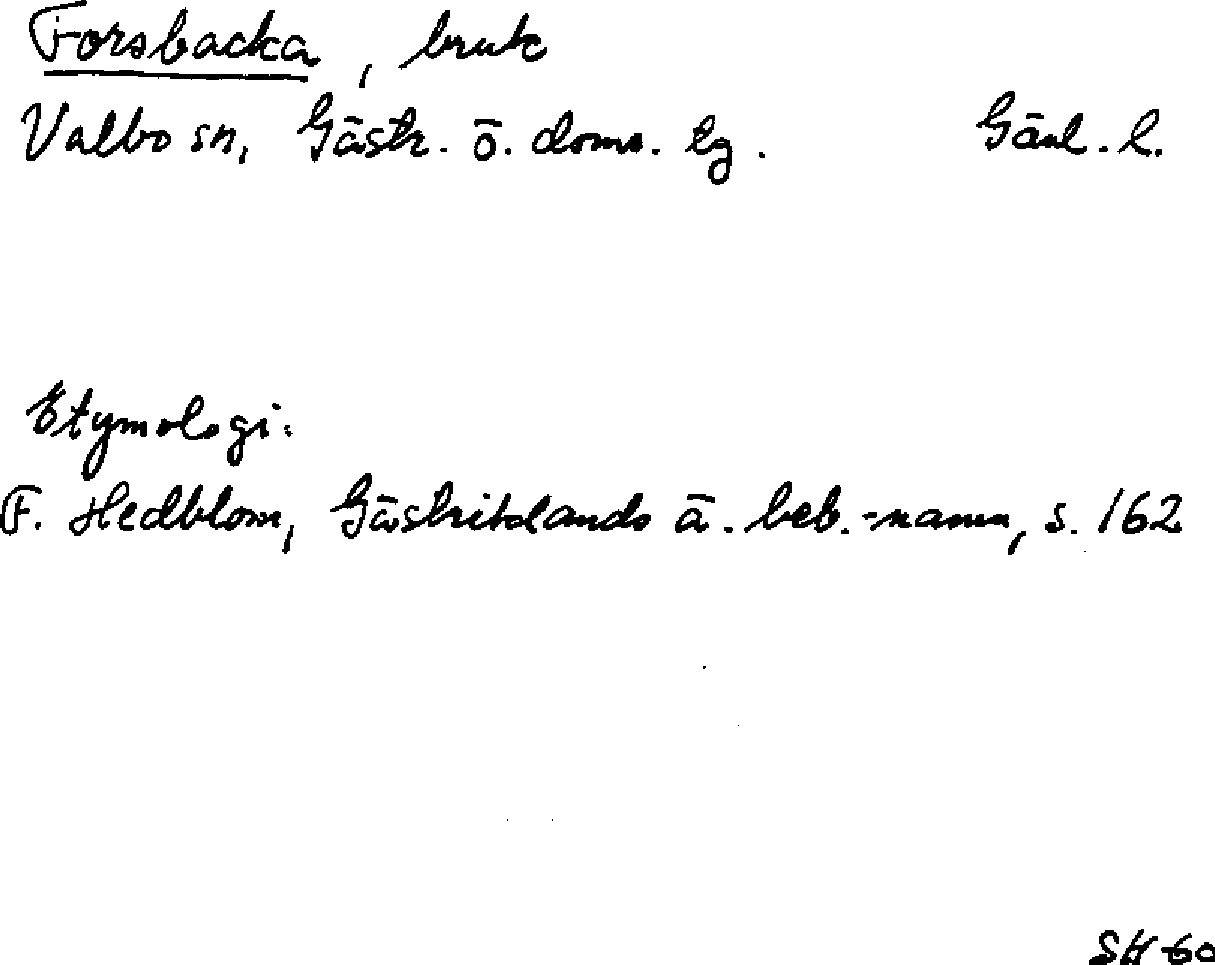 Forsbacka, bruk
Valbo sn, Gästr. ö. doms. tg. Gävl. l.
Etymologi:
F. Hedblom, Gästriklands ä. beb.-namn, s. 162
SH 60